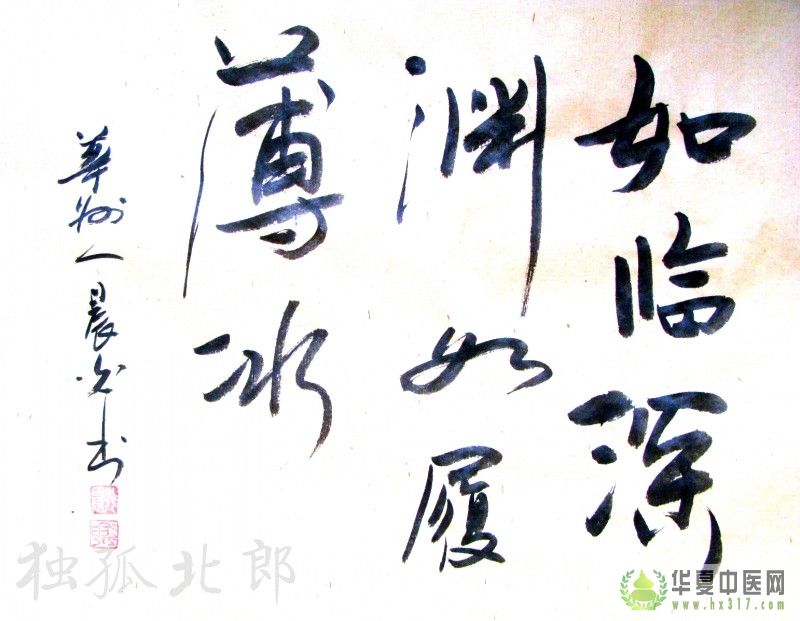 如临深
渊如履
薄冰
华州人晨光书
独孤北郎
华夏中医网
www.hx317.com